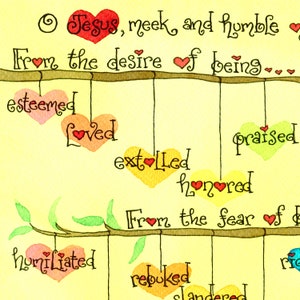 O Jesus, meek and humble
From the desire of being....
esteemed
Loved
praised
extolled
honored
From the fear of
humiliated
rebuked
slandered